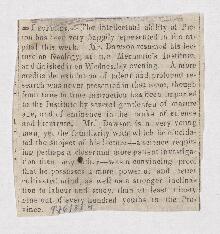 The intellectual ability of Pic-
tou has been very happily represented in his ca-
pital this week. Mr. Dawson resumed his lec-
tures on Geology, at the Mechanics' Institute,
and finished it on Wednesday evening. A more
creditable exhibition of talent and profound re-
search was never presented in that room, though
from time to time instruction has been imparted
in the Institute by special gentlemen of mature
age, and of eminence in the ranks of science
and literature. Mr. Dawson is a very young
man, yet the familiarity with which he elucida-
ted the subject of his lecture—a science requir-
ing perhaps a closer and more patient investiga-
tion than any other—was a convincing proof
that he possesses a more powerful and better
cultivated mind, as well as a stronger inclina-
tion to labour and study, than at least ninety
nine out of every hundred youths in the Pro-
vince.